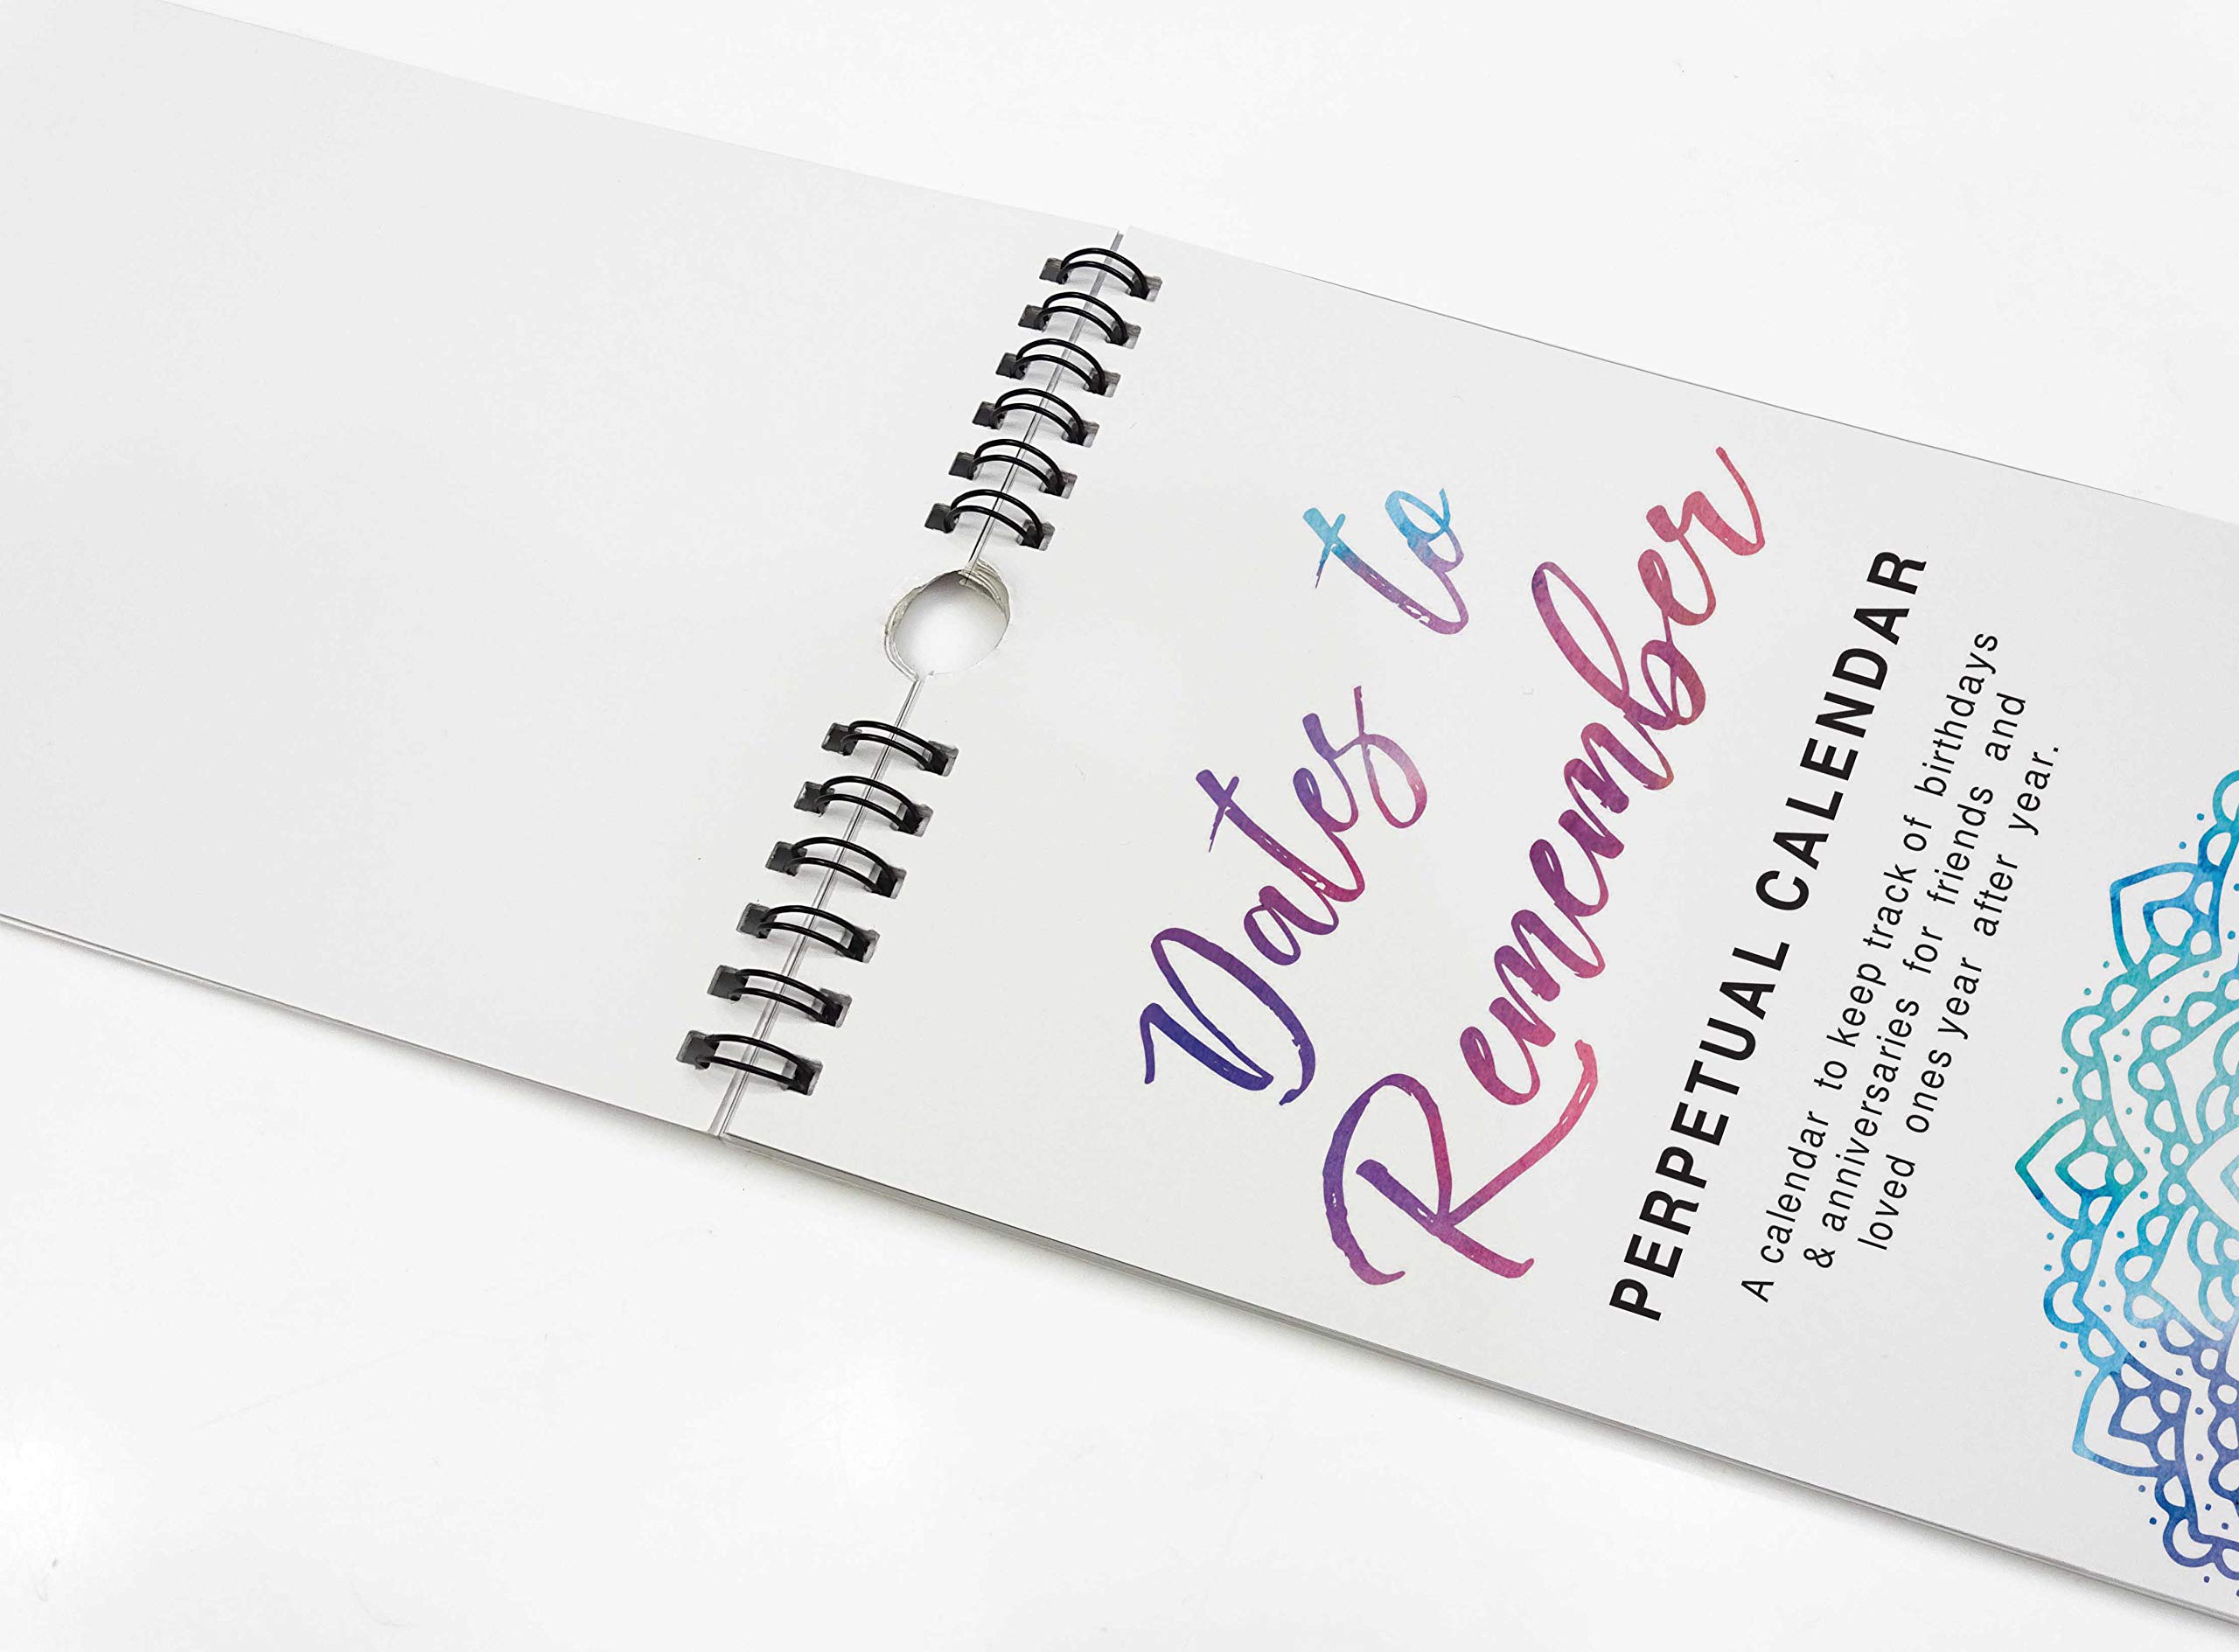 Dates to
Remember
PERPETUAL CALENDAR
A calendar to keep track of birthdays
& anniversaries for friends and
loved ones year after year.